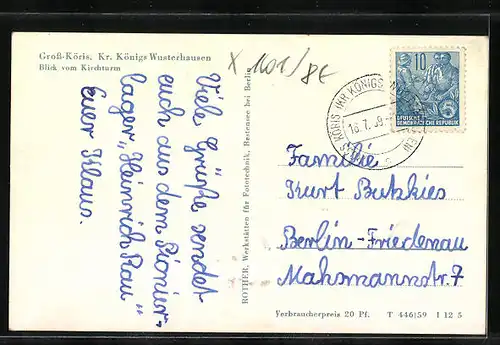 Groß-Köris, Kr. Königs Wusterhausen
Blick vom Kirchturm
X 1101/8E
Viele Grüße sendet
euch aus dem Pionier-
lager „Heinrich Rau"
Euer Klaus.
ROTHER, Werkstätten für Fototechnik, Bestensee bei Berlin
KÖRIS (KR KÖNIGS
18.7.59
10
DEUTSCHE
DEMOKRATISCHE REPUBLIK
Familie
Kurt Butzkies
Berlin-Friedenau
Mahsmannstr. 7
Verbraucherpreis 20 Pf. T 446|59 I 12 5